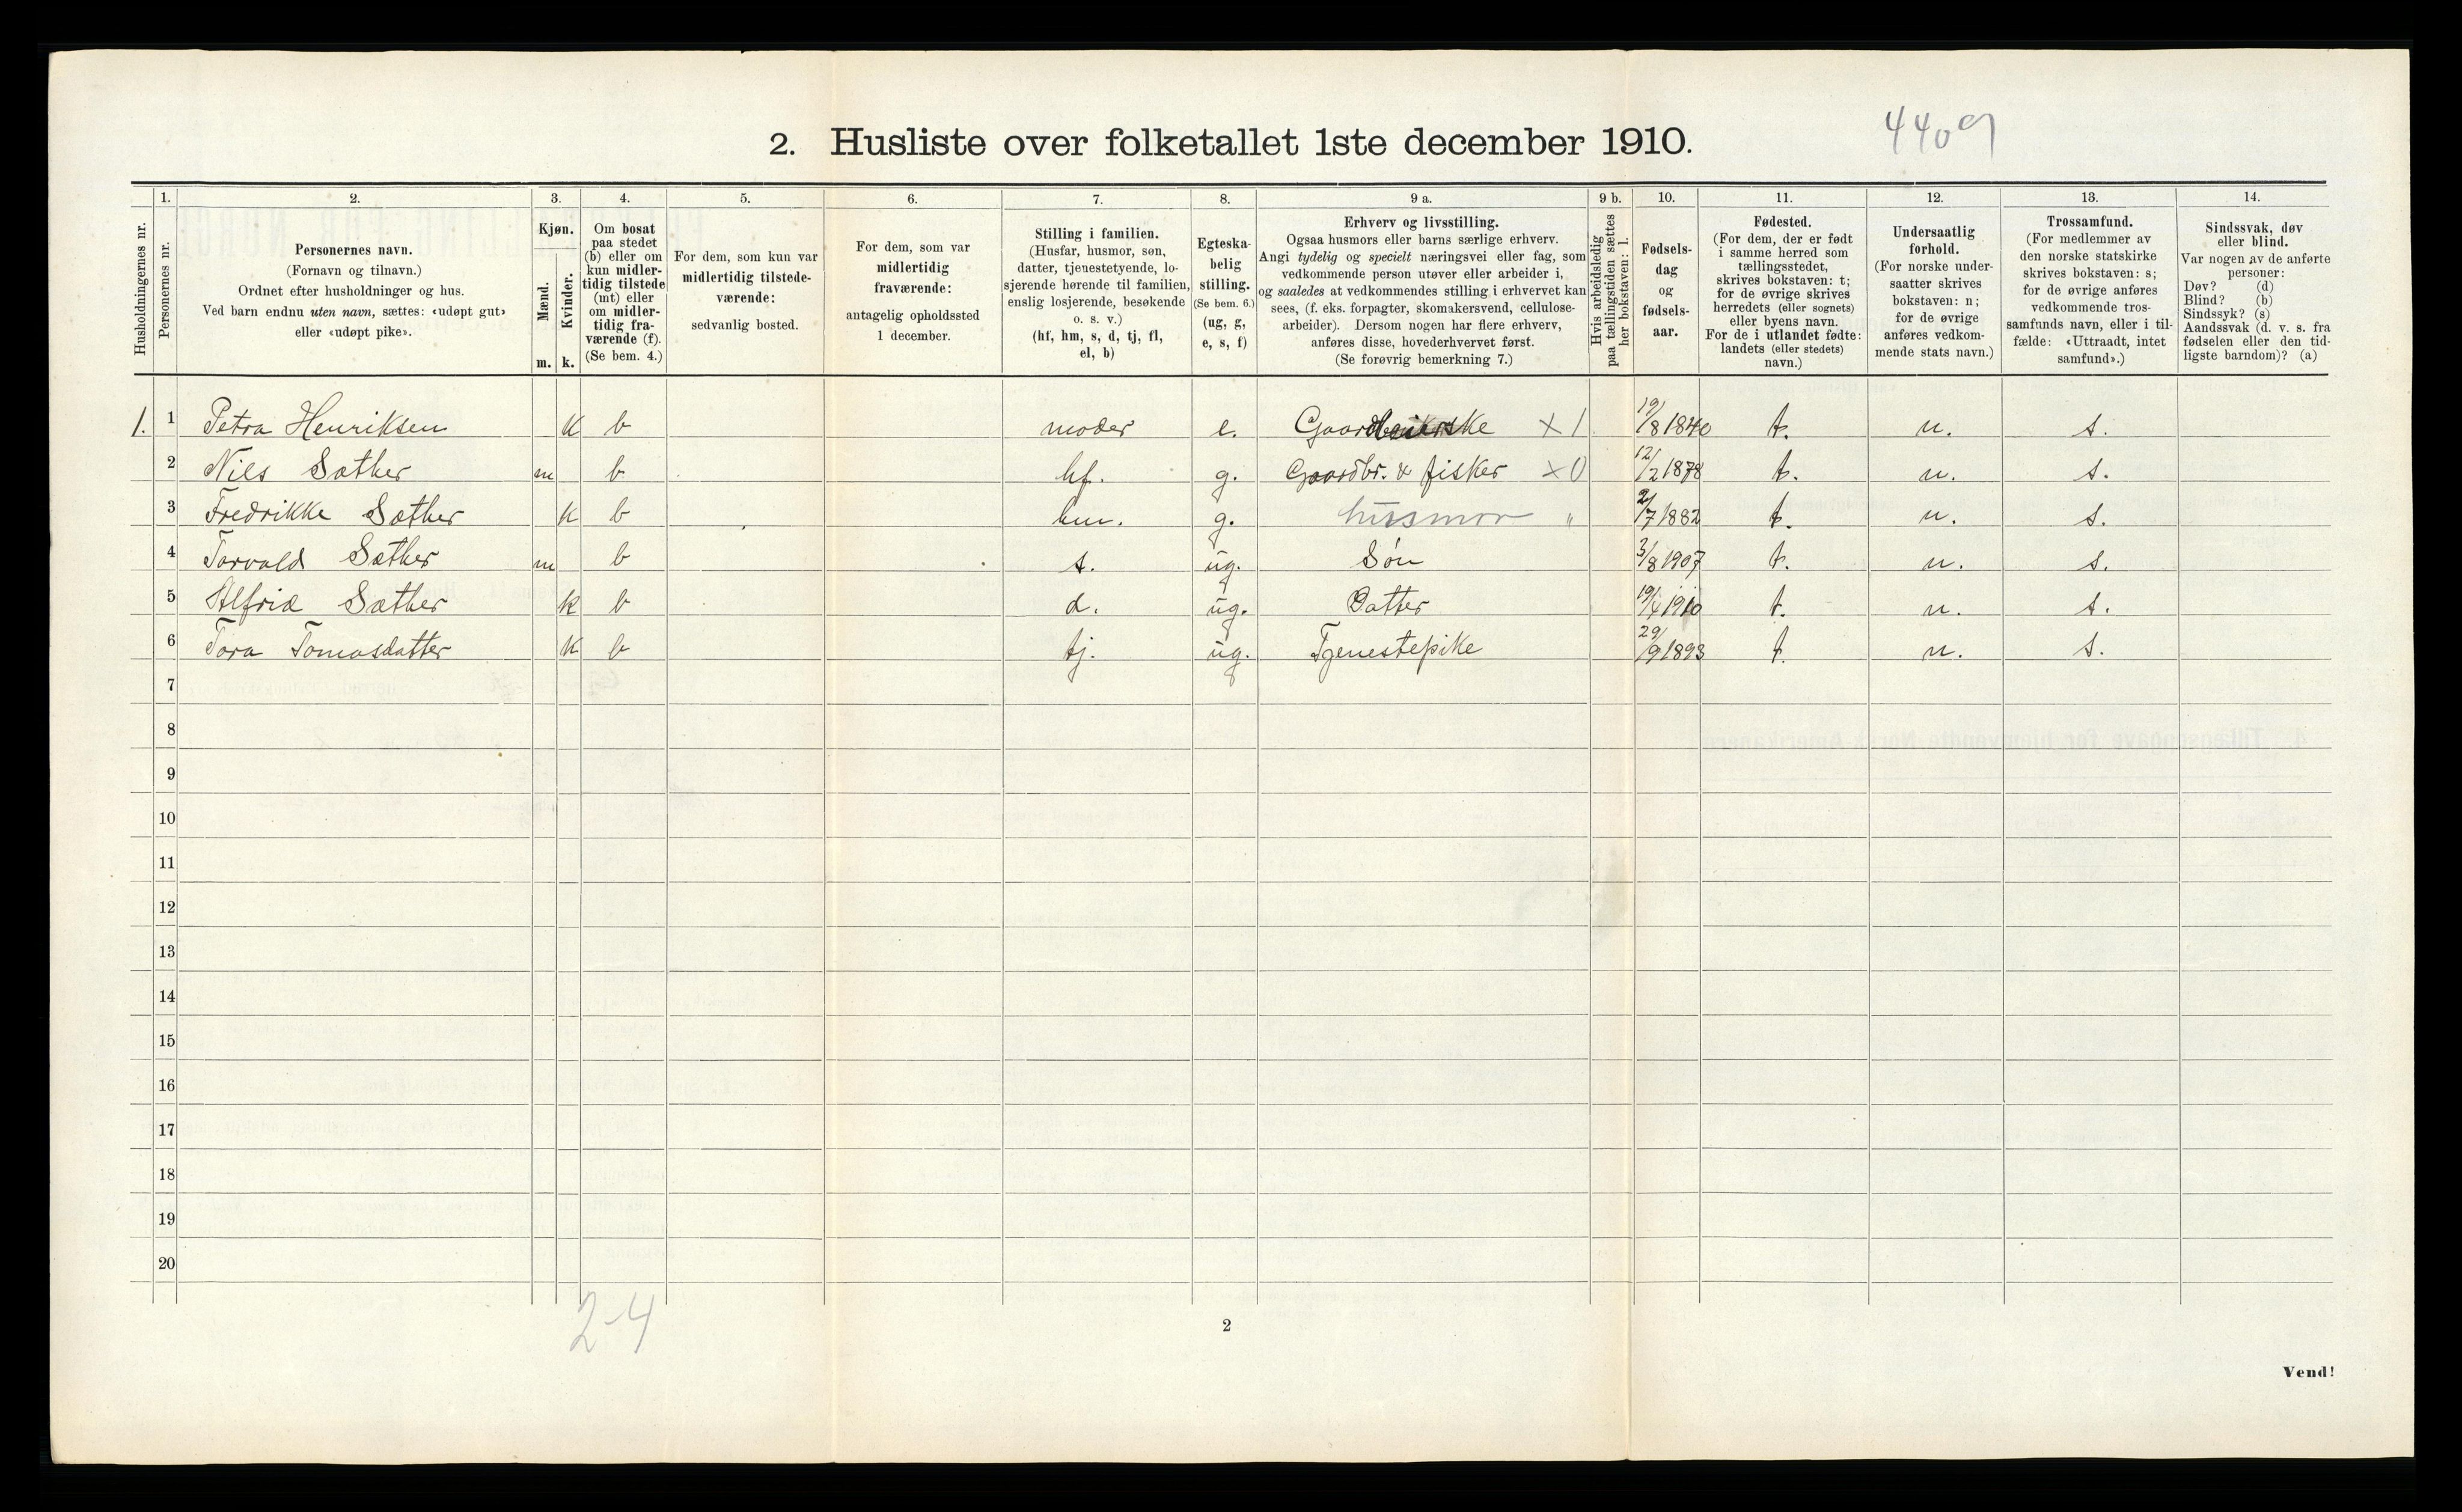 4409
2. Husliste over folketallet 1ste december 1910.
Husholdningernes nr.
1. Personernes nr.
2. Personernes navn.
(Fornavn og tilnavn.)
Ordnet efter husholdninger og hus.
Ved barn endnu uten navn, sættes: «udøpt gut»
eller «udøpt pike».
3. Kjøn.
Mænd. m.
Kvinder. k.
4. Om bosat
paa stedet
(b) eller om
kun midler-
tidig tilstede
(mt) eller
om midler-
tidig fra-
værende (f).
(Se bem. 4.)
5. For dem, som kun var
midlertidig tilstede-
værende:
sedvanlig bosted.
6. For dem, som var
midlertidig
fraværende:
antagelig opholdssted
1 december.
7. Stilling i familien.
(Husfar, husmor, søn,
datter, tjenestetyende, lo-
sjerende hørende til familien,
enslig losjerende, besøkende
o. s. v.)
(hf, hm, s, d, tj, fl,
el, b)
8. Egteska-
belig
stilling.
(Se bem. 6.)
(ug, g,
e, s, f)
9 a. Erhverv og livsstilling.
Ogsaa husmors eller barns særlige erhverv.
Angi tydelig og specielt næringsvei eller fag, som
vedkommende person utøver eller arbeider i,
og saaledes at vedkommendes stilling i erhvervet kan
sees, (f. eks. forpagter, skomakersvend, cellulose-
arbeider). Dersom nogen har flere erhverv,
anføres disse, hovederhvervet først.
(Se forøvrig bemerkning 7.)
9 b. Hvis arbeidsledig
paa tællingstiden sættes
her bokstaven: l.
10. Fødsels-
dag
og
fødsels-
aar.
11. Fødested.
(For dem, der er født
i samme herred som
tællingsstedet,
skrives bokstaven: t;
for de øvrige skrives
herredets (eller sognets)
eller byens navn.
For de i utlandet fødte:
landets (eller stedets)
navn.)
12. Undersaatlig
forhold.
(For norske under-
saatter skrives
bokstaven: n;
for de øvrige
anføres vedkom-
mende stats navn.)
13. Trossamfund.
(For medlemmer av
den norske statskirke
skrives bokstaven: s;
for de øvrige anføres
vedkommende tros-
samfunds navn, eller i til-
fælde: «Uttraadt, intet
samfund».)
14. Sindssvak, døv
eller blind.
Var nogen av de anførte
personer:
Døv? (d)
Blind? (b)
Sindssyk? (s)
Aandssvak (d. v. s. fra
fødselen eller den tid-
ligste barndom)? (a)
1. 1 Petra Henriksen K b moder e. X 1 19/8 1840 t. n. s.
2 Nils Sæther m b hf. g. Gaardbr. & fisker X 0 12/2 1878 t. n. s.
3 Fredrikke Sæther K b hm. g. husmor " 2/7 1882 t. n. s.
4 Torvald Sæther m b s. ug. Søn 3/8 1907 t. n. s.
5 Alfrid Sæther K b d. ug. Datter 19/4 1910 t. n. s.
6 Tora Tomasdatter K b tj. ug. Tjenestepike 29/9 1893 t. n. s.
7
8
9
10
11
12
13
14
15
16
17
18
19
20
2-4
2
Vend!